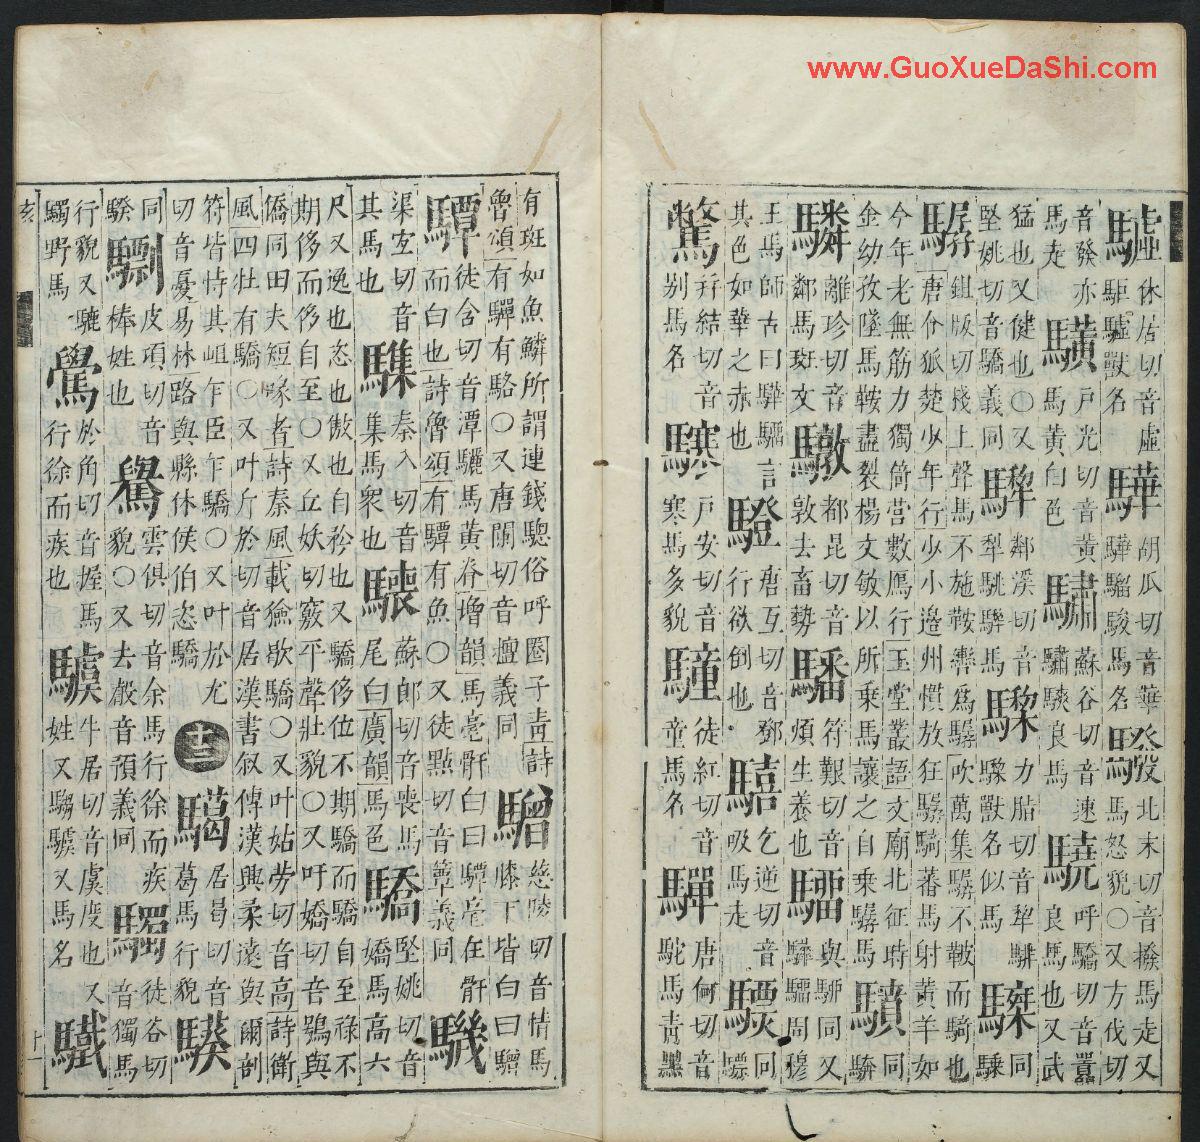 驉休居切音虛駏驉獸名驊胡瓜切音華驊騮駿馬名北末切音撥馬走又馬怒貌○又方伐切
音發亦馬走戶光切音黃馬黃白色驌蘇谷切音速驌驦良馬驍呼驕切音囂良馬也又武
猛也又健也○又堅姚切音驕義同鄰溪切音犂力脂切音犂獸名似馬同騋
驏鉏版切棧上聲馬不施鞍轡爲驏吹萬集驏不鞁而騎也唐令狐楚少年行少小邊州慣放狂驏騎蕃馬射黃羊如
今年老無筋力獨倚營數鴈行玉堂叢語文廟北征時金幼孜墜馬鞍盡裂楊文敏以所乘馬讓之自乘驏馬同
驎離珍切音鄰馬斑文驐都昆切音敦去畜勢符艱切音煩生養也驑與駵同又驊驑周穆
王馬師古曰驊驑言其色如華之赤也唐亙切音鄧行欲倒也乞逆切音吸馬走同驃
幷結切音別馬名戶安切音寒馬多貌徒紅切音童馬名驒唐何切音駝馬青黑
有斑如魚鱗所謂連錢驄俗呼圈子青詩魯頌有驒有駱○又唐闌切音壇義同驓慈陵切音情馬膝下皆白曰驓
驔徒含切音潭驪馬黃脊增韻馬毫骭白曰驔毫在骭而白也詩魯頌有驔有魚○又徒點切音簟義同
渠宜切音其馬也秦入切音集馬衆也蘇郎切音喪馬尾白廣韻馬色驕堅姚切音嬌馬高六
尺又逸也恣也傲也自矜也又驕侈位不期驕而驕自至祿不期侈而侈自至○又丘妖切竅平聲壯貌○又吁嬌切音鴞與
僑同田夫短喙者詩秦風載獫歇驕○又叶姑勞切音高詩衛風四牡有驕○又叶斤於切音居漢書叙傳漢興柔遠與爾剖
符皆恃其岨乍臣乍驕○又叶於尤切音憂易林路與縣休侯伯恣驕十三居曷切音葛馬行貌
同騤皮項切音棒姓也雲俱切音余馬行徐而疾貌○又去殽音預義同徒谷切音獨馬
行貌又野馬於角切音握馬行徐而疾也牛居切音虞度也又姓又又馬名驖
亥
www.GuoXueDaShi.com